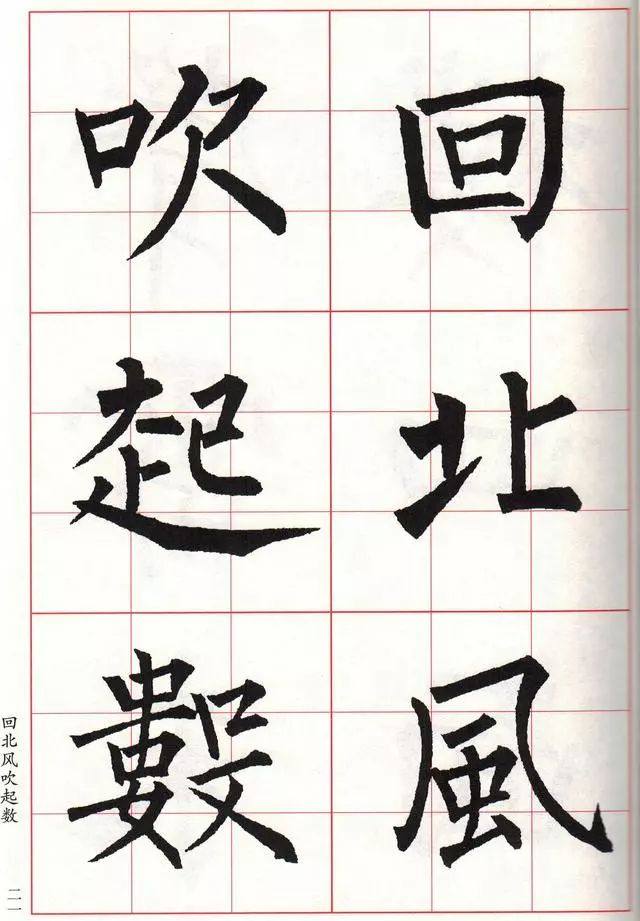 回北風
吹起數
回北风吹起数
二一